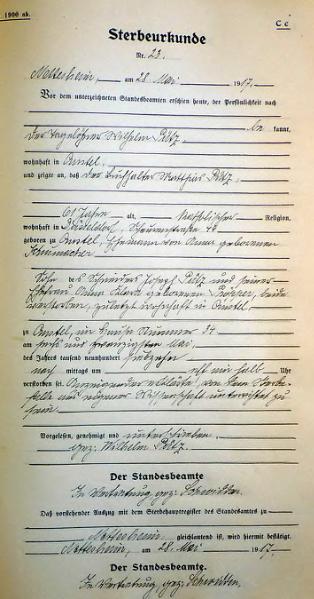 1900 ab.
C e
Sterbeurkunde
Nr. 23.
Nettersheim, am 28 Mai 1917.
Vor dem unterzeichneten Standesbeamten erschien heute, der Persönlichkeit nach
be kannt,
der Tagelöhner Wilhelm Pütz
wohnhaft in
und zeigte an, daß der Buchhalter Matthias Pütz,
61 Jahre alt, katholischer Religion,
wohnhaft in Düsseldorf, 48
geboren zu Ehemann von Anna geborenen
Sohn des Schneiders Josef Pütz und seiner
Ehefrau Anna geborenen beide
verstorben, zuletzt wohnhaft in
zu im Hause Nummer 34
am sechs und zwanzigsten Mai
des Jahres tausend neunhundert siebzehn
nach mittags um elf einhalb Uhr
verstorben sei. Anzeigender erklärte, von dem Sterbe-
falle aus eigener Wissenschaft unterrichtet zu
sein.
Vorgelesen, genehmigt und unterschrieben.
gez. Wilhelm Pütz.
Der Standesbeamte
In Vertretung gez.
Daß vorstehender Auszug mit dem Sterbehauptregister des Standesamtes zu
Nettersheim, gleichlautend ist, wird hiermit bestätigt.
Nettersheim, am 28. Mai 1917.
Der Standesbeamte.
In Vertretung gez.